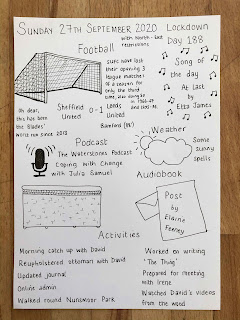 SUNDAY 27TH SEPTEMBER 2020 Lockdown
Day 188
Football
SUFC have lost
their opening 3
league matches
of a season for
only the third
time, also doing so
Song of
the
day
At Last
by
Etta James
Oh dear,
this has been
the Blades'
worst run since 2013
Sheffield
United
0-1
Leeds
United
Bamford (88')
Podcast
The Waterstones Podcast
Coping With Change
with Julia Samuel
Weather
Some
sunny
spells
Audiobook
Post
by
Elaine
Feeney
Activities
Morning catch up with David
Reupholstered ottoman with David
Updated journal
Online admin
Walked round Nunsmoor Park
Worked on writing
'The Thing'
Prepared for meeting
with Irene
Watched David's videos
from the week